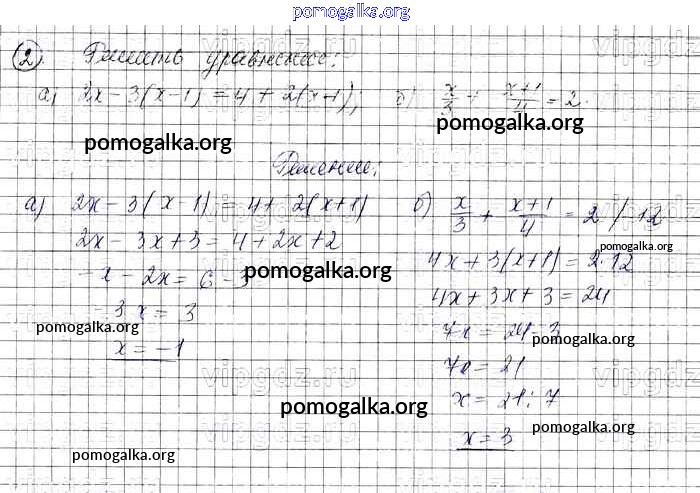 pomogalka.org
2) Решить уравнение:
а) 2x - 3(x-1) = 4 + 2(x+1); б) x/3 + (x+1)/4 = 2.
pomogalka.org pomogalka.org
Решение:
а) 2x - 3(x-1) = 4 + 2(x+1)
2x - 3x + 3 = 4 + 2x + 2
-x - 2x = 6 - 3
pomogalka.org
-3x = 3
pomogalka.org
x = -1
б) x/3 + (x+1)/4 = 2 / · 12
pomogalka.org
4x + 3(x+1) = 2 · 12
4x + 3x + 3 = 24
7x = 24 - 3
pomogalka.org
7x = 21
x = 21 : 7
pomogalka.org
pomogalka.org
x = 3
pomogalka.org
vipgdz.ru